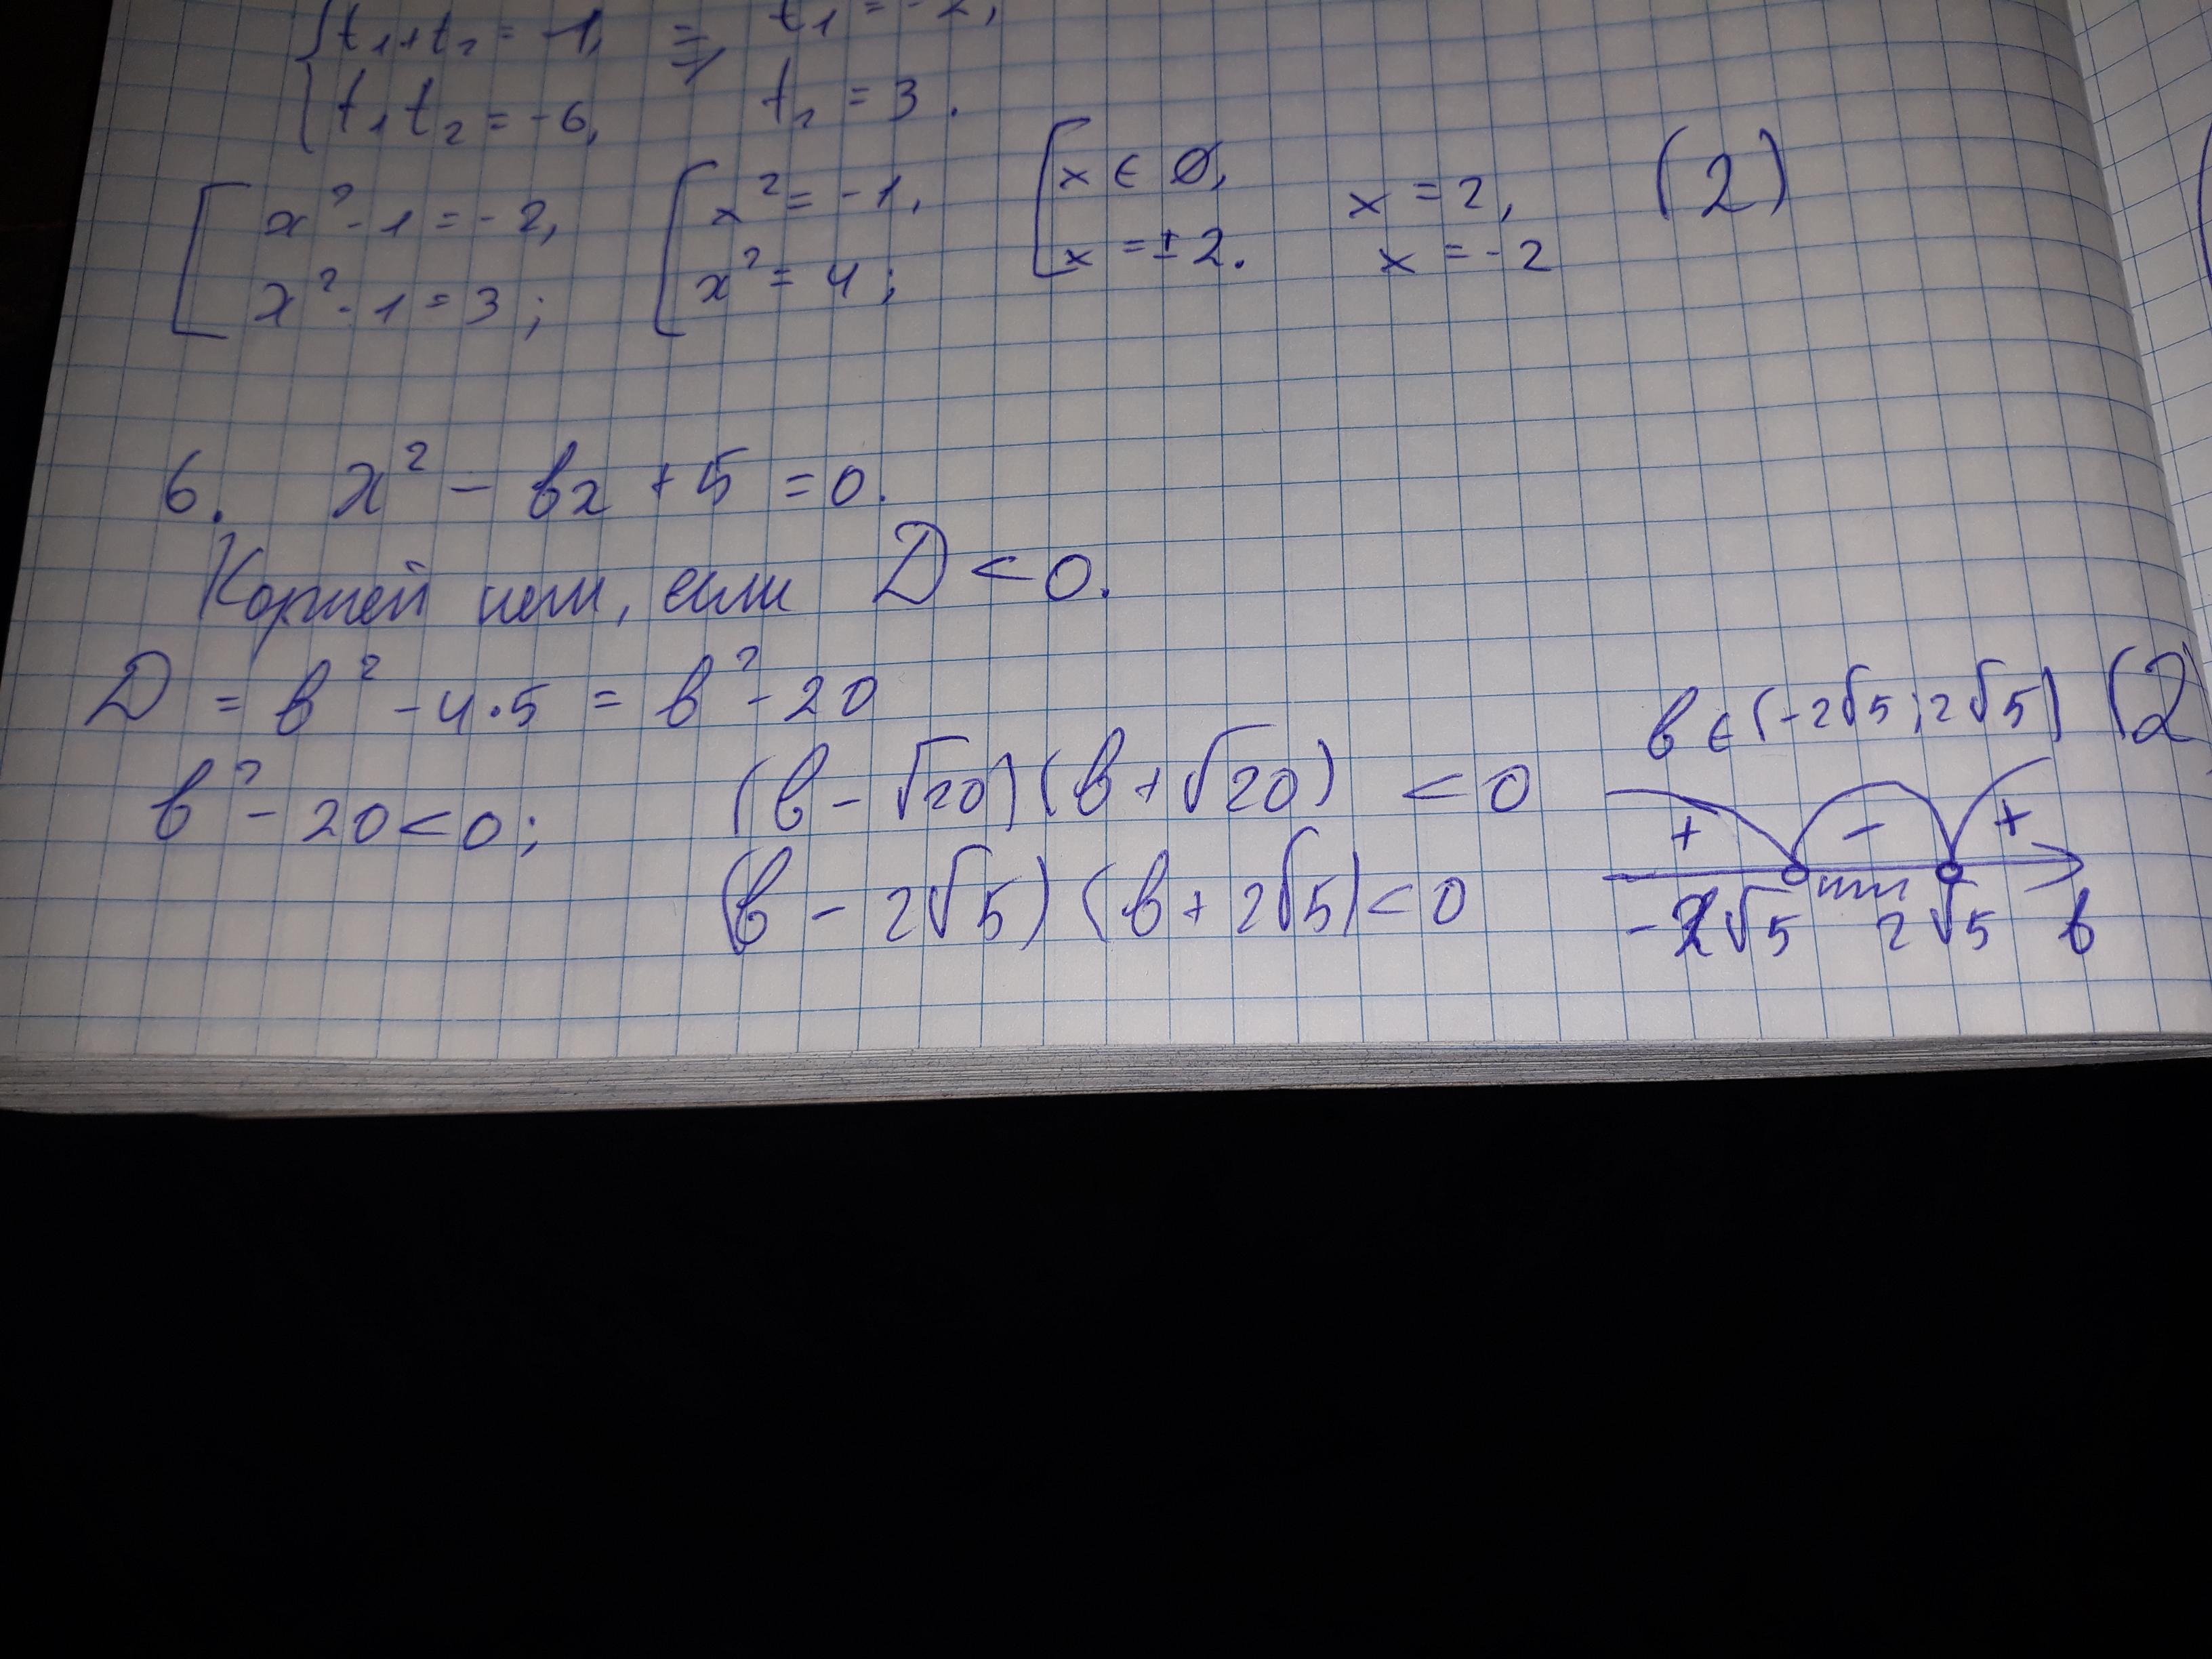 { t₁+t₂ = -1, ⇒ t₁ = -2,
t₁t₂ = -6, t₂ = 3.
[ x²-1 = -2, [ x² = -1, [ x ∈ ∅, x = 2, (2)
x²-1 = 3; x² = 4; x = ±2. x = -2
6. x² - bx + 5 = 0.
Корней нет, если D < 0.
D = b² - 4·5 = b² - 20
b ∈ (-2√5; 2√5) (2)
b² - 20 < 0; (b - √20)(b + √20) < 0
+ - +
(b - 2√5)(b + 2√5) < 0
-2√5 2√5 b